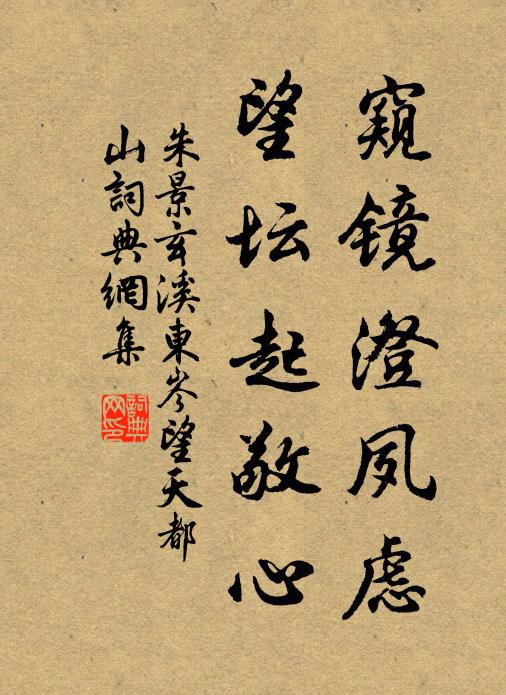 窥镜澄夙虑
望坛起敬心
朱景玄溪東岑望天都
山詞典網集
詞典
网印